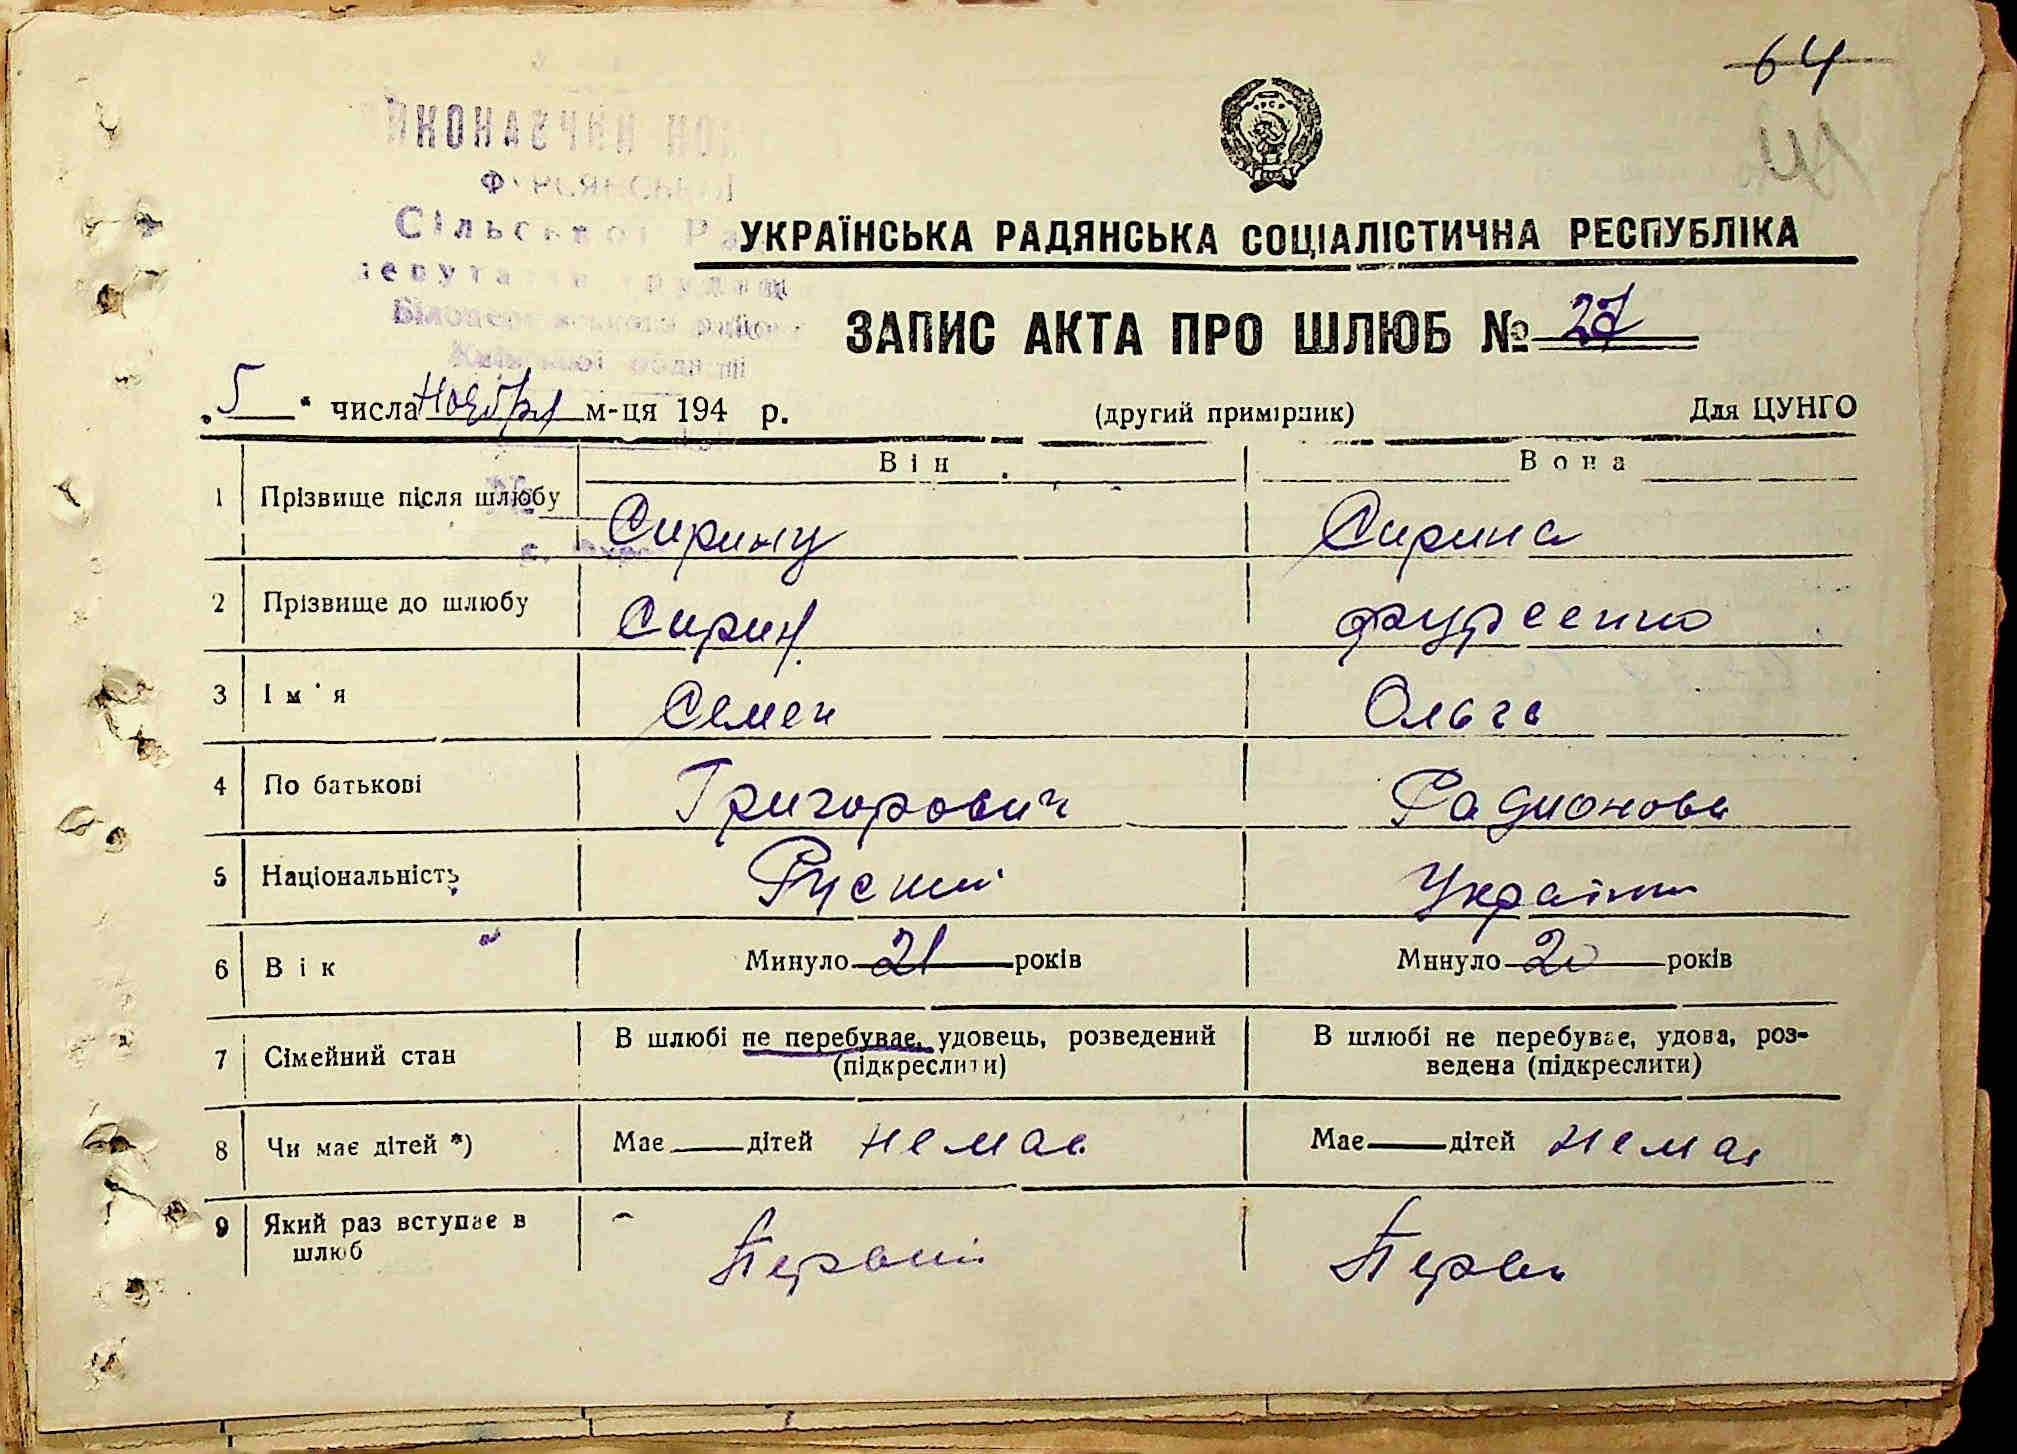 64
УКРАЇНСЬКА РАДЯНСЬКА СОЦІАЛІСТИЧНА РЕСПУБЛІКА
ЗАПИС АКТА ПРО ШЛЮБ № 27
„5" числа Ноября м-ця 194 р. (другий примірник) Для ЦУНГО
Він Вона
1 Прізвище після шлюбу Сирину Сирина
2 Прізвище до шлюбу Сирин Фурсенко
3 Ім'я Семен Ольга
4 По батькові Григорович Радионовь
5 Національність Руский Україн
6 Вік Минуло 21 років Минуло 20 років
7 Сімейний стан В шлюбі не перебуває, удовець, розведений (підкреслити) В шлюбі не перебуває, удова, роз-
ведена (підкреслити)
8 Чи має дітей *) Має дітей немає Має дітей немає
9 Який раз вступає в
шлюб Первий Перви